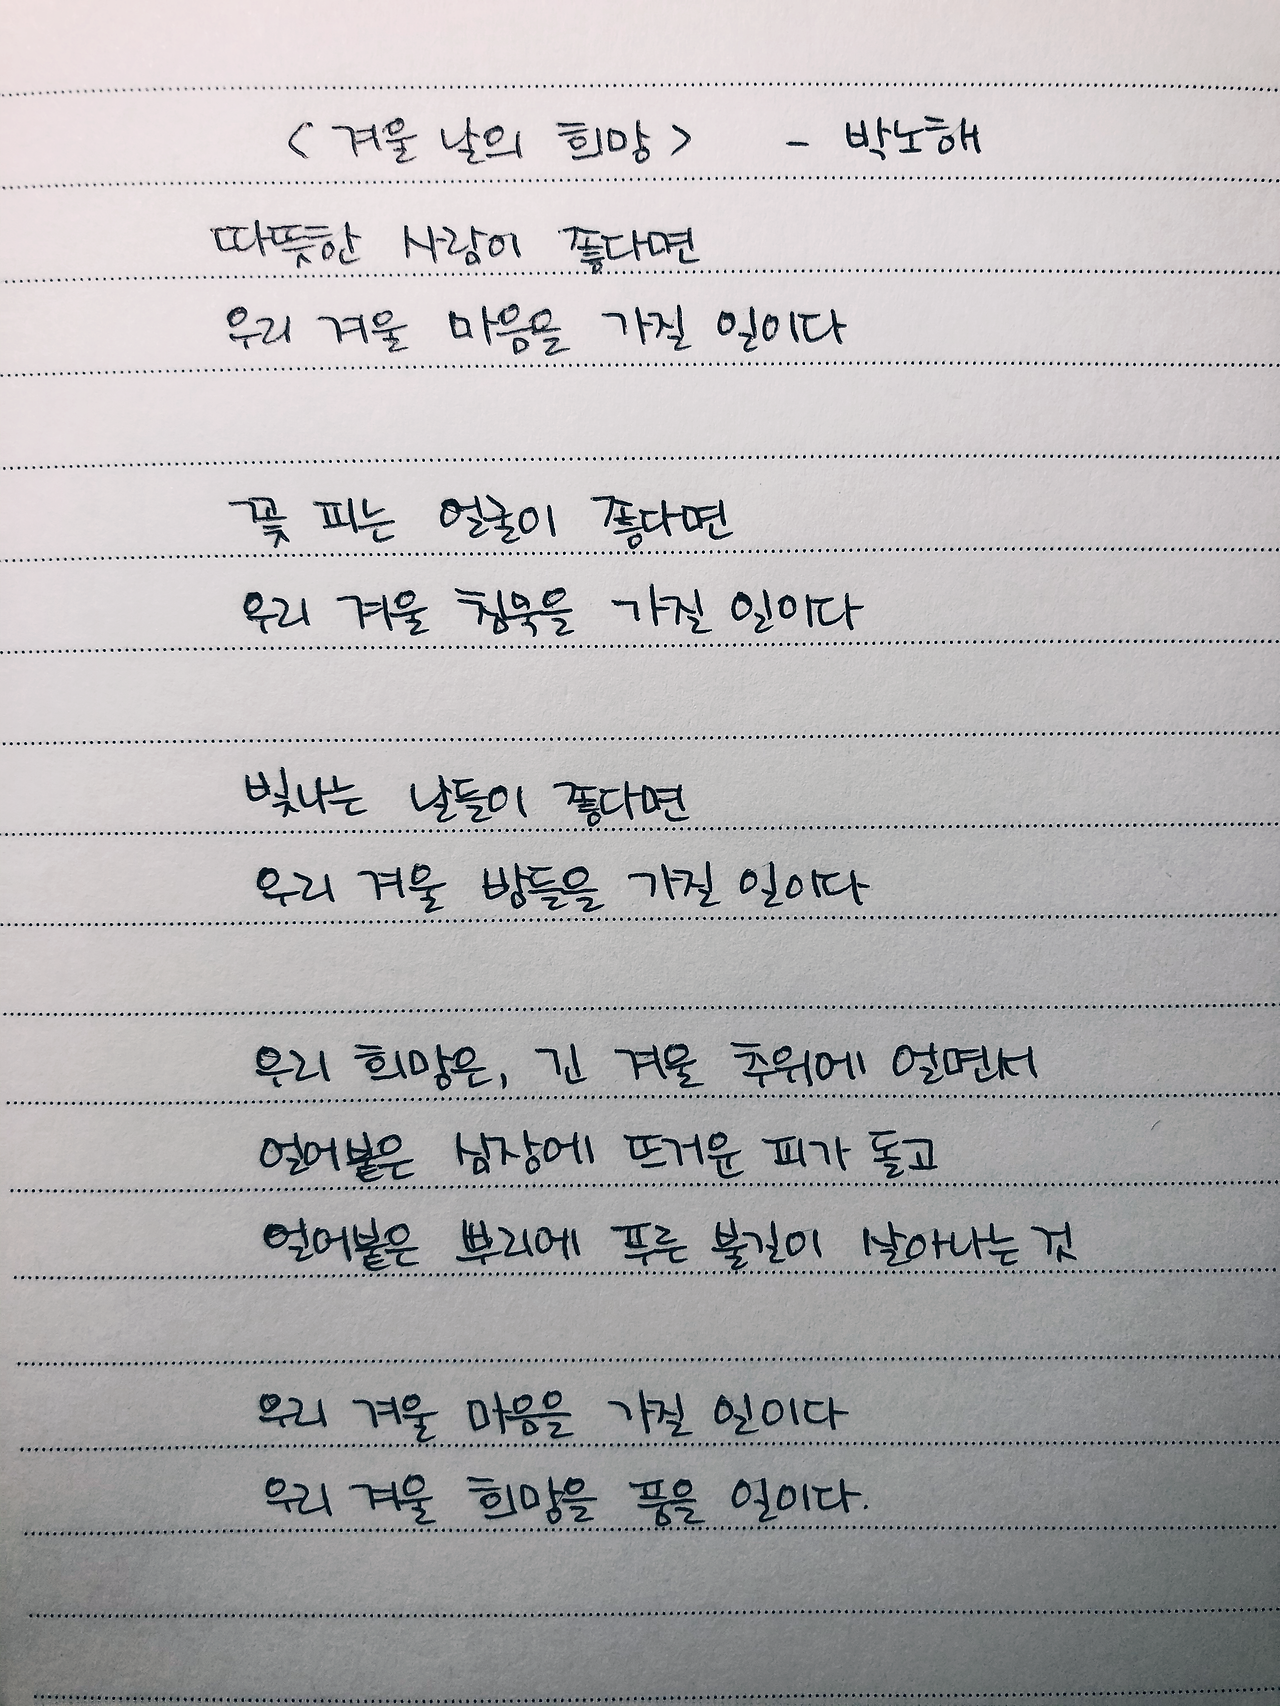 < 겨울 날의 희망 > - 박노해
따뜻한 사람이 좋다면
우리 겨울 마음을 가질 일이다
꽃 피는 얼굴이 좋다면
우리 겨울 침묵을 가질 일이다
빛나는 날들이 좋다면
우리 겨울 밤들을 가질 일이다
우리 희망은, 긴 겨울 추위에 얼면서
얼어붙은 심장에 뜨거운 피가 돌고
얼어붙은 뿌리에 푸른 불길이 살아나는 것
우리 겨울 마음을 가질 일이다
우리 겨울 희망을 품을 일이다.